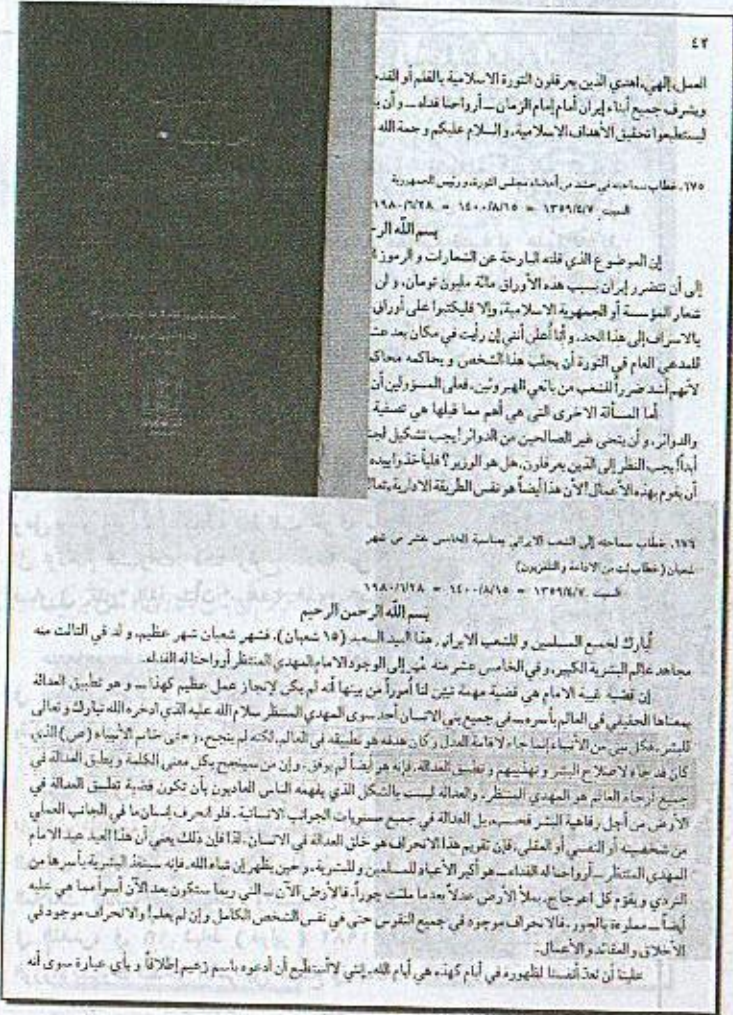 ٤٢
العمل، إلهي، اهدي الذين يعرقلون الثورة الاسلامية بالقلم أو القدم
ويشرف جميع أبناء إيران أمام إمام الزمان ــ أرواحنا فداه ــ و أن
ليستطيعوا تحقيق الأهداف الاسلامية، و السلام عليكم و رحمة الله
٦٧٥. خطاب سماحته في حشد من أعضاء مجلس الثورة، و رئيس الجمهورية
السبت ١٣٥٩/٤/٧ = ١٤٠٠/٨/١٥ = ١٩٨٠/٦/٢٨
بسم الله الر
إن الموضوع الذي قلته البارحة عن الشعارات و الرموز
إلى أن تتضرر إيران بسبب هذه الأوراق مائة مليون تومان، و لن
شعار المؤسسة أو الجمهورية الاسلامية، وإلا فليكتبوا على أوراق
بالاسراف إلى هذا الحد، و أنا أعلن أنني إن رأيت في مكان بعد
للمدعي العام في الثورة أن يجلب هذا الشخص و يحاكمه
لأنهم أشد ضرراً للشعب من بائعي الهيروئين، فعلى المسؤولين أن
أما المسألة الاخرى التي هي أهم مما قبلها هي تصفية
والدوائر، و أن يتنحى غير الصالحين من الدوائر! يجب تشكيل
أبداً! يجب النظر إلى الذين يعرقلون، هل هو الوزير؟ فليأخذوا بيده
أن يقوم بهذه الأعمال! لأن هذا أيضاً هو نفس الطريقة الادارية،
٦٧٦. خطاب سماحته إلى الشعب الايراني بمناسبة الخامس عشر من شهر
شعبان (خطاب بُث من الاذاعة و التلفزيون)
السبت ١٣٥٩/٤/٧ = ١٤٠٠/٨/١٥ = ١٩٨٠/٦/٢٨
بسم الله الرحمن الرحيم
أبارك لجميع المسلمين و للشعب الايراني هذا العيد السعيد (١٥ شعبان)، فشهر شعبان شهر عظيم، و لد في الثالث منه
مجاهد عالم البشرية الكبير، و في الخامس عشر منه إلى الوجود الامام المهدي المنتظر أرواحنا له الفداء.
إن قضية غيبة الامام هي قضية مهمة تبيّن لنا أموراً من بينها أنه لم يكن لإنجاز عمل عظيم كهذا ــ و هو تطبيق العدالة
بمعناها الحقيقي في العالم بأسره ــ في جميع بني الانسان أحد سوى المهدي المنتظر سلام الله عليه الذي ادخره الله تبارك و تعالى
للبشر. فكل نبي من الأنبياء إنما جاء لاقامة العدل و كان هدفه هو تطبيقه في العالم، لكنه لم ينجح، و حتى خاتم الأنبياء (ص) الذي
كان قد جاء لاصلاح البشر و تهذيبهم و تطبيق العدالة، فإنه هو أيضاً لم يوفق، و إن من سينجح بكل معنى الكلمة و يطبق العدالة في
جميع أرجاء العالم هو المهدي المنتظر، والعدالة ليست بالشكل الذي يفهمه الناس العاديون بأن تكون قضية تطبيق العدالة في
الأرض من أجل رفاهية البشر فحسب، بل العدالة في جميع مستويات الجوانب الانسانية. فلو انحرف إنسان ما في الجانب العملي
من شخصيته أو النفسي أو العقلي، فإن تقويم هذا الانحراف هو خلق العدالة في الانسان، لذا فإن ذلك يعني أن هذا العيد عيد الامام
المهدي المنتظر ــ أرواحنا له الفداء ــ هو أكبر الأعياد للمسلمين و للبشرية، و حين يظهر إن شاء الله، فإنه سينقذ البشرية بأسرها من
التردي و يقوّم كل اعوجاج، يملأ الأرض عدلاً بعدما ملئت جوراً، فالأرض الآن ــ التي ربما ستكون بعد الآن أسوأ مما هي عليه
أيضاً ــ مملوءة بالجور. فالانحراف موجود في جميع النفوس حتى في نفس الشخص الكامل و إن لم يعلم! والانحراف موجود في
الأخلاق و العقائد و الأعمال.
علينا أن نعدّ أنفسنا لظهوره في أيام كهذه هي أيام الله. إنني لا أستطيع أن أدعوه باسم زعيم إطلاقاً و بأي عبارة سوى أنه